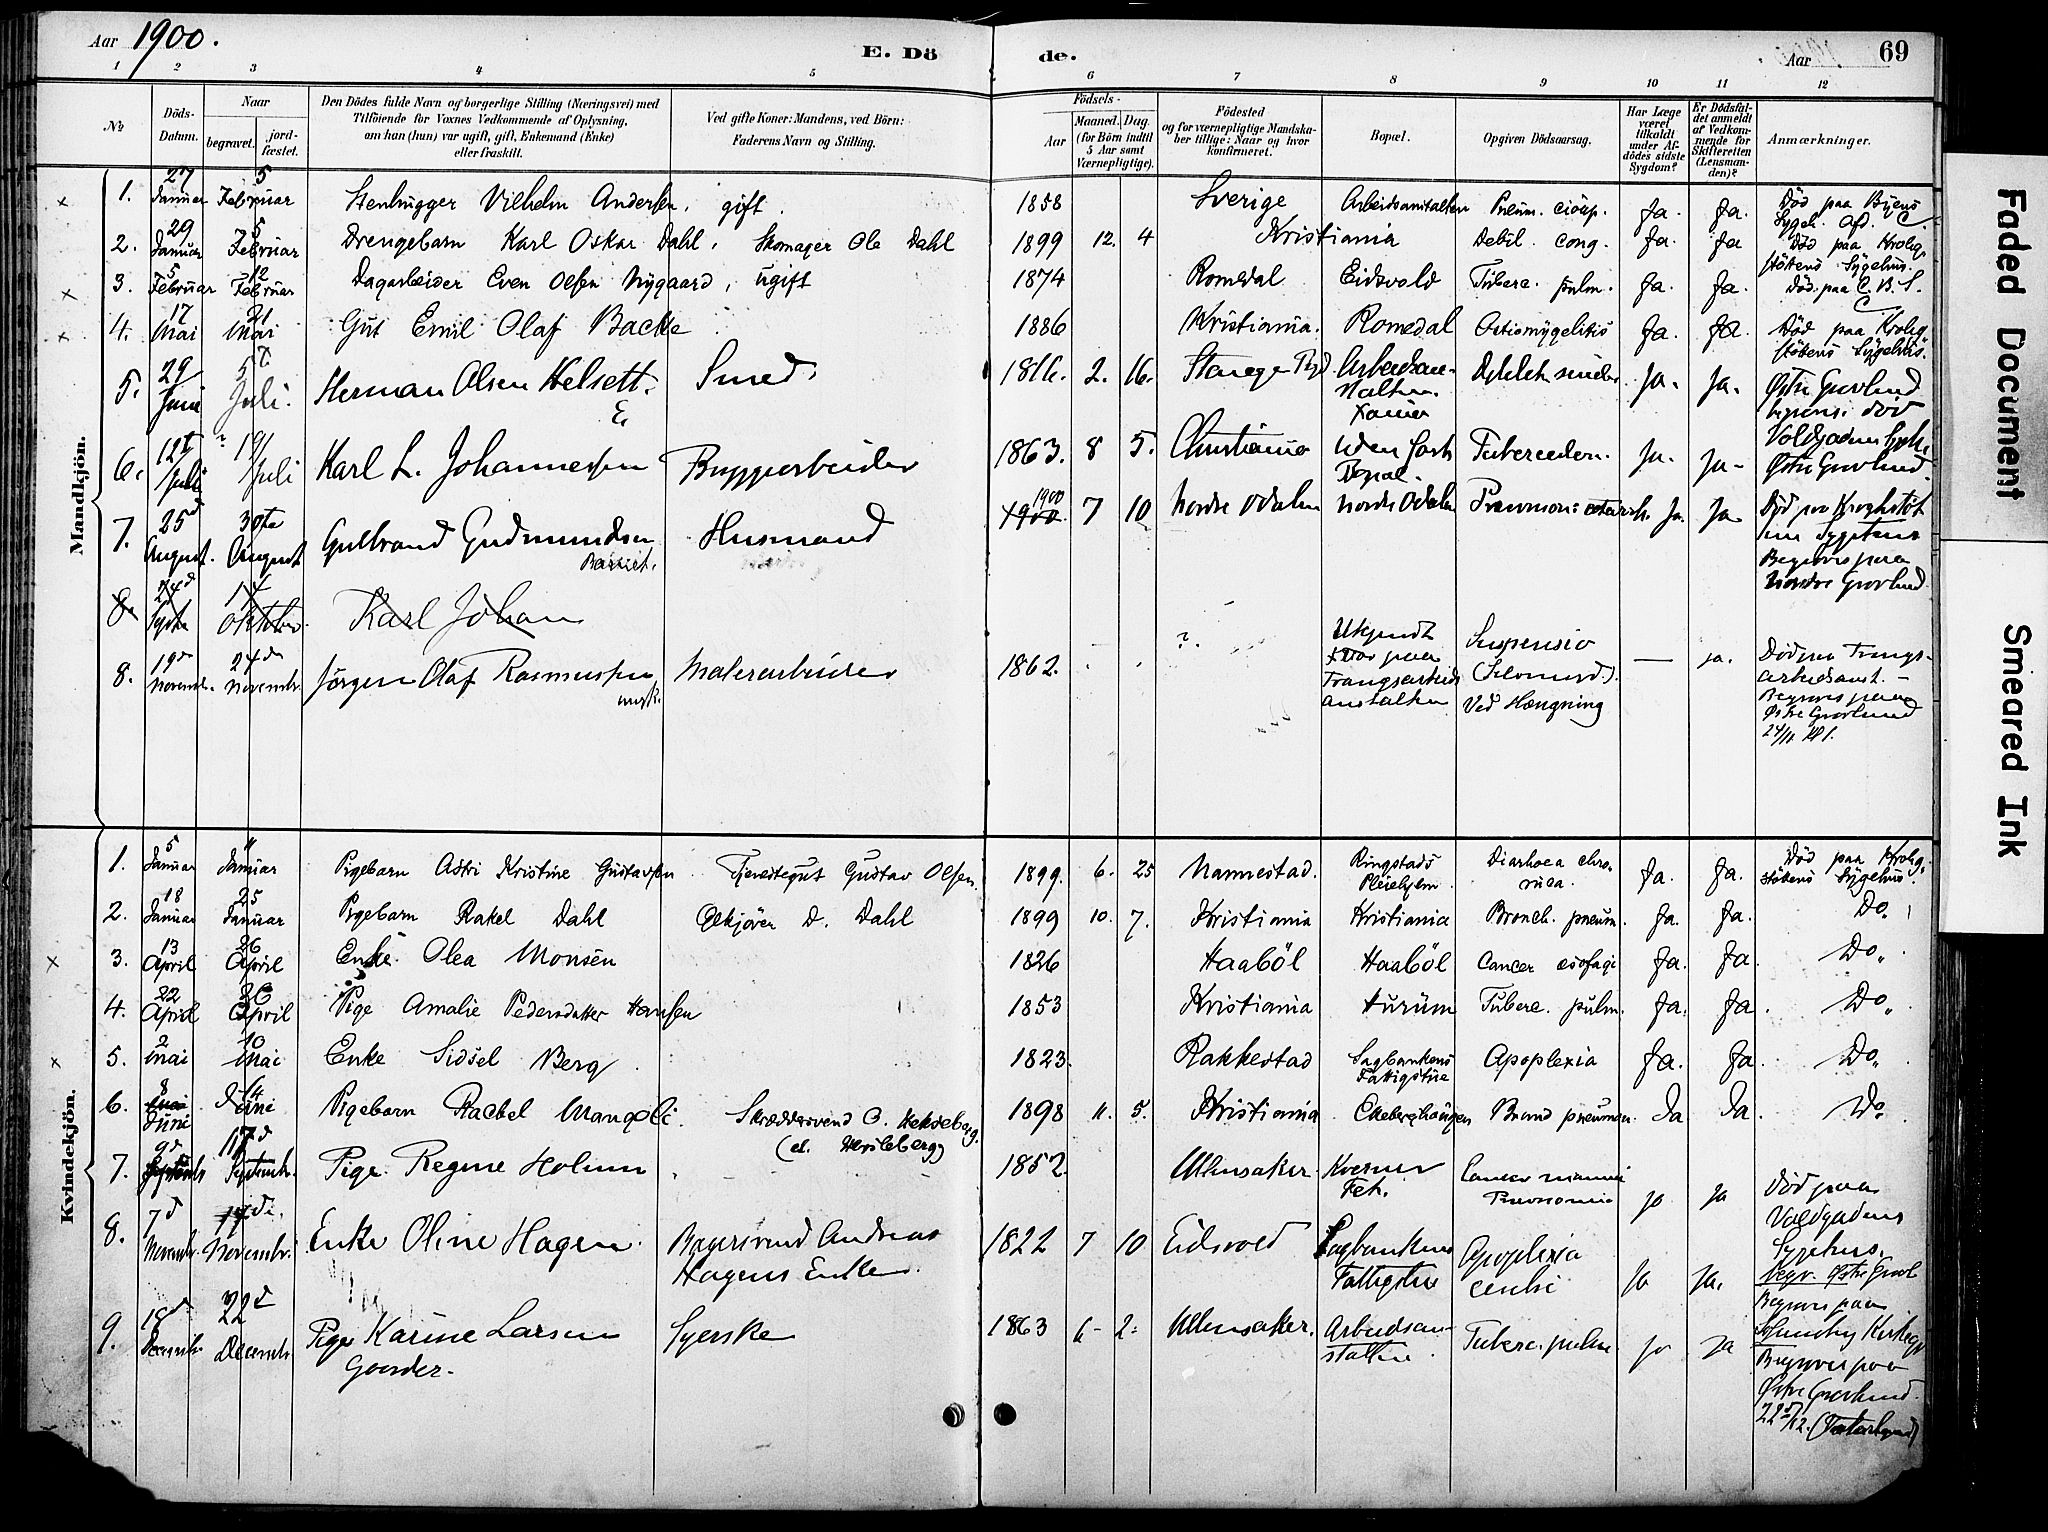 Aar 1900.
E. Döde.
Aar
69
1 2 3 4 5 6 7 8 9 10 11 12
No
Döds-Datum.
Naar
begravet.
jordfæstet.
Den Dödes fulde Navn og borgerlige Stilling (Næringsvei) med
Tilföiende for Voxnes Vedkommende af Oplysning,
om han (hun) var ugift, gift, Enkemand (Enke)
eller fraskilt.
Ved gifte Koner: Mandens, ved Börn:
Faderens Navn og Stilling.
Födsels-
Aar
Maaned. Dag.
(for Börn indtil
5 Aar samt
Værnepligtige).
Födested
og for værnepligtige Mandskaber tillige: Naar og hvor
konfirmeret.
Bopæl.
Opgiven Dödsaarsag.
Har Læge
været
tilkaldt
under Afdödes sidste
Sygdom?
Er Dödsfaldet anmeldt
af Vedkommende for
Skifteretten
(Lensmanden)?
Anmærkninger.
Mandkjön.
1. 27 Januar 5 Februar Stenhugger Vilhelm Andersen, gift. 1858 Sverige Arbeidsanstalten Pneum. Ja. Ja. Död paa Byens Sygeh. Afd. C.
2. 29 Januar 5 Februar Drengebarn Karl Oskar Dahl, Skomager Ole Dahl 1899 12. 4 Kristiania Debil. cong. Ja. Ja Död paa Krohgstötens Sygehus.
3. 5 Februar 12 Februar Dagarbeider Even Olsen Nygaard, ugift 1874 Romedal Eidsvold Tuberc. pulm. Ja. Ja. Död paa C. B. S.
4. 17 Mai 21 Mai Gut Emil Olaf Backe 1886 Kristiania. Romedal Ostiomyelitis Ja. Ja. Död paa Krohgstötens Sygehus.
5. 29 Juni 5 Juli. Herman Olsen Helsett. E. Smed. 1816. 2. 16. Stange Arbeidsanstalten. Ja. Ja. Østre Gravlund
6. 12te Juli 19 Juli Karl L. Johannessen Bryggearbeider 1863. 8 5. Christiania Uden fast Bopæl. Tuberculon. Ja. Ja- Voldgadens Sygh. Østre Gravlund
7. 25d August. 30te August Gulbrand Gudmundsen Barnet. Husmand 1900 1900. 7 10 Nordre Odalen Nordre Odalen Pneumoni catarrh. Ja. Ja Död paa Kroghstötens Sygehus Begraves paa Nordre Gravlund.
8. 24d 14 Oktober Karl Johan
8. 19d Novembr. 24de Novembr. Jörgen Olaf Rasmussen ungk. Malerarbeider 1862. ? Ukjendt var paa Tvangsarbeidsanstalten Suspensio (Selvmord). Ved Hængning — ja. Död paa Tvangsarbeidsanst. — Begraves paa Østre Gravlund 24/11 Kl 1.
Kvindekjön.
1. 5 Januar 11 Januar Pigebarn Astri Kristine Gustavsen Tjenestegut Gustav Olsen. 1899. 6. 25 Nannestad. Ringstads Pleiehjem Diarhoea chronica. Ja. Ja. Död paa Krohgstötens Sygehus.
2. 18 Januar 25 Januar Pigebarn Rakel Dahl Ölkjörer D. Dahl 1899 10. 7. Kristiania Kristiania Bronch. pneum. Ja. Ja. Do.
3. 13 April 26 April Enke Olea Monsen 1826 Haaböl Haaböl Cancer esofagi Ja. Ja. Do.
4. 22 April 26 April Pige Amalie Pedersdatter Hansen 1853 Kristiania Hurum Tuberc. pulm. Ja. Ja. Do.
5. 2 Mai 10 Mai Enke Sidsel Berg 1823. Rakkestad Sagbankens Fattigstue Apoplexia Ja. Ja. Do.
6. 8 Mai Juni 14 Juni Pigebarn Rachel Mangoli. Skræddersvend O. Hekseberg. (el. Hersleberg) 1898 11. 5. Kristiania Ekeberghaugen Bronch pneumon. Ja Ja. Do.
7. 9d Septembr 17d Septembr. Pige Regine Holum 1852. Ullensaker. Kværner Feb. Cancer mamma Pneumonia Ja Ja Död paa Voldgadens Sygehus. Begr. Østre Gravl
8. 7d Novembr. 14de. Novembr. Enke Oline Hagen. Bagersvend Andreas Hagens Enke. 1822 7 10 Eidsvold Sagbankens Fattigstue Apoplexia cerebri Ja Ja. Begraves paa Kirkeg.
9. 18d Decembr. 22d Decembr Pige Karine Larsen Gaarder. Syerske 1863 6- 2- Ullensaker. Arbeidsanstalten. Tuberc. pulm. Ja Ja Begraves paa Østre Gravlund. 22d/12.
Faded Document
Smeared Ink